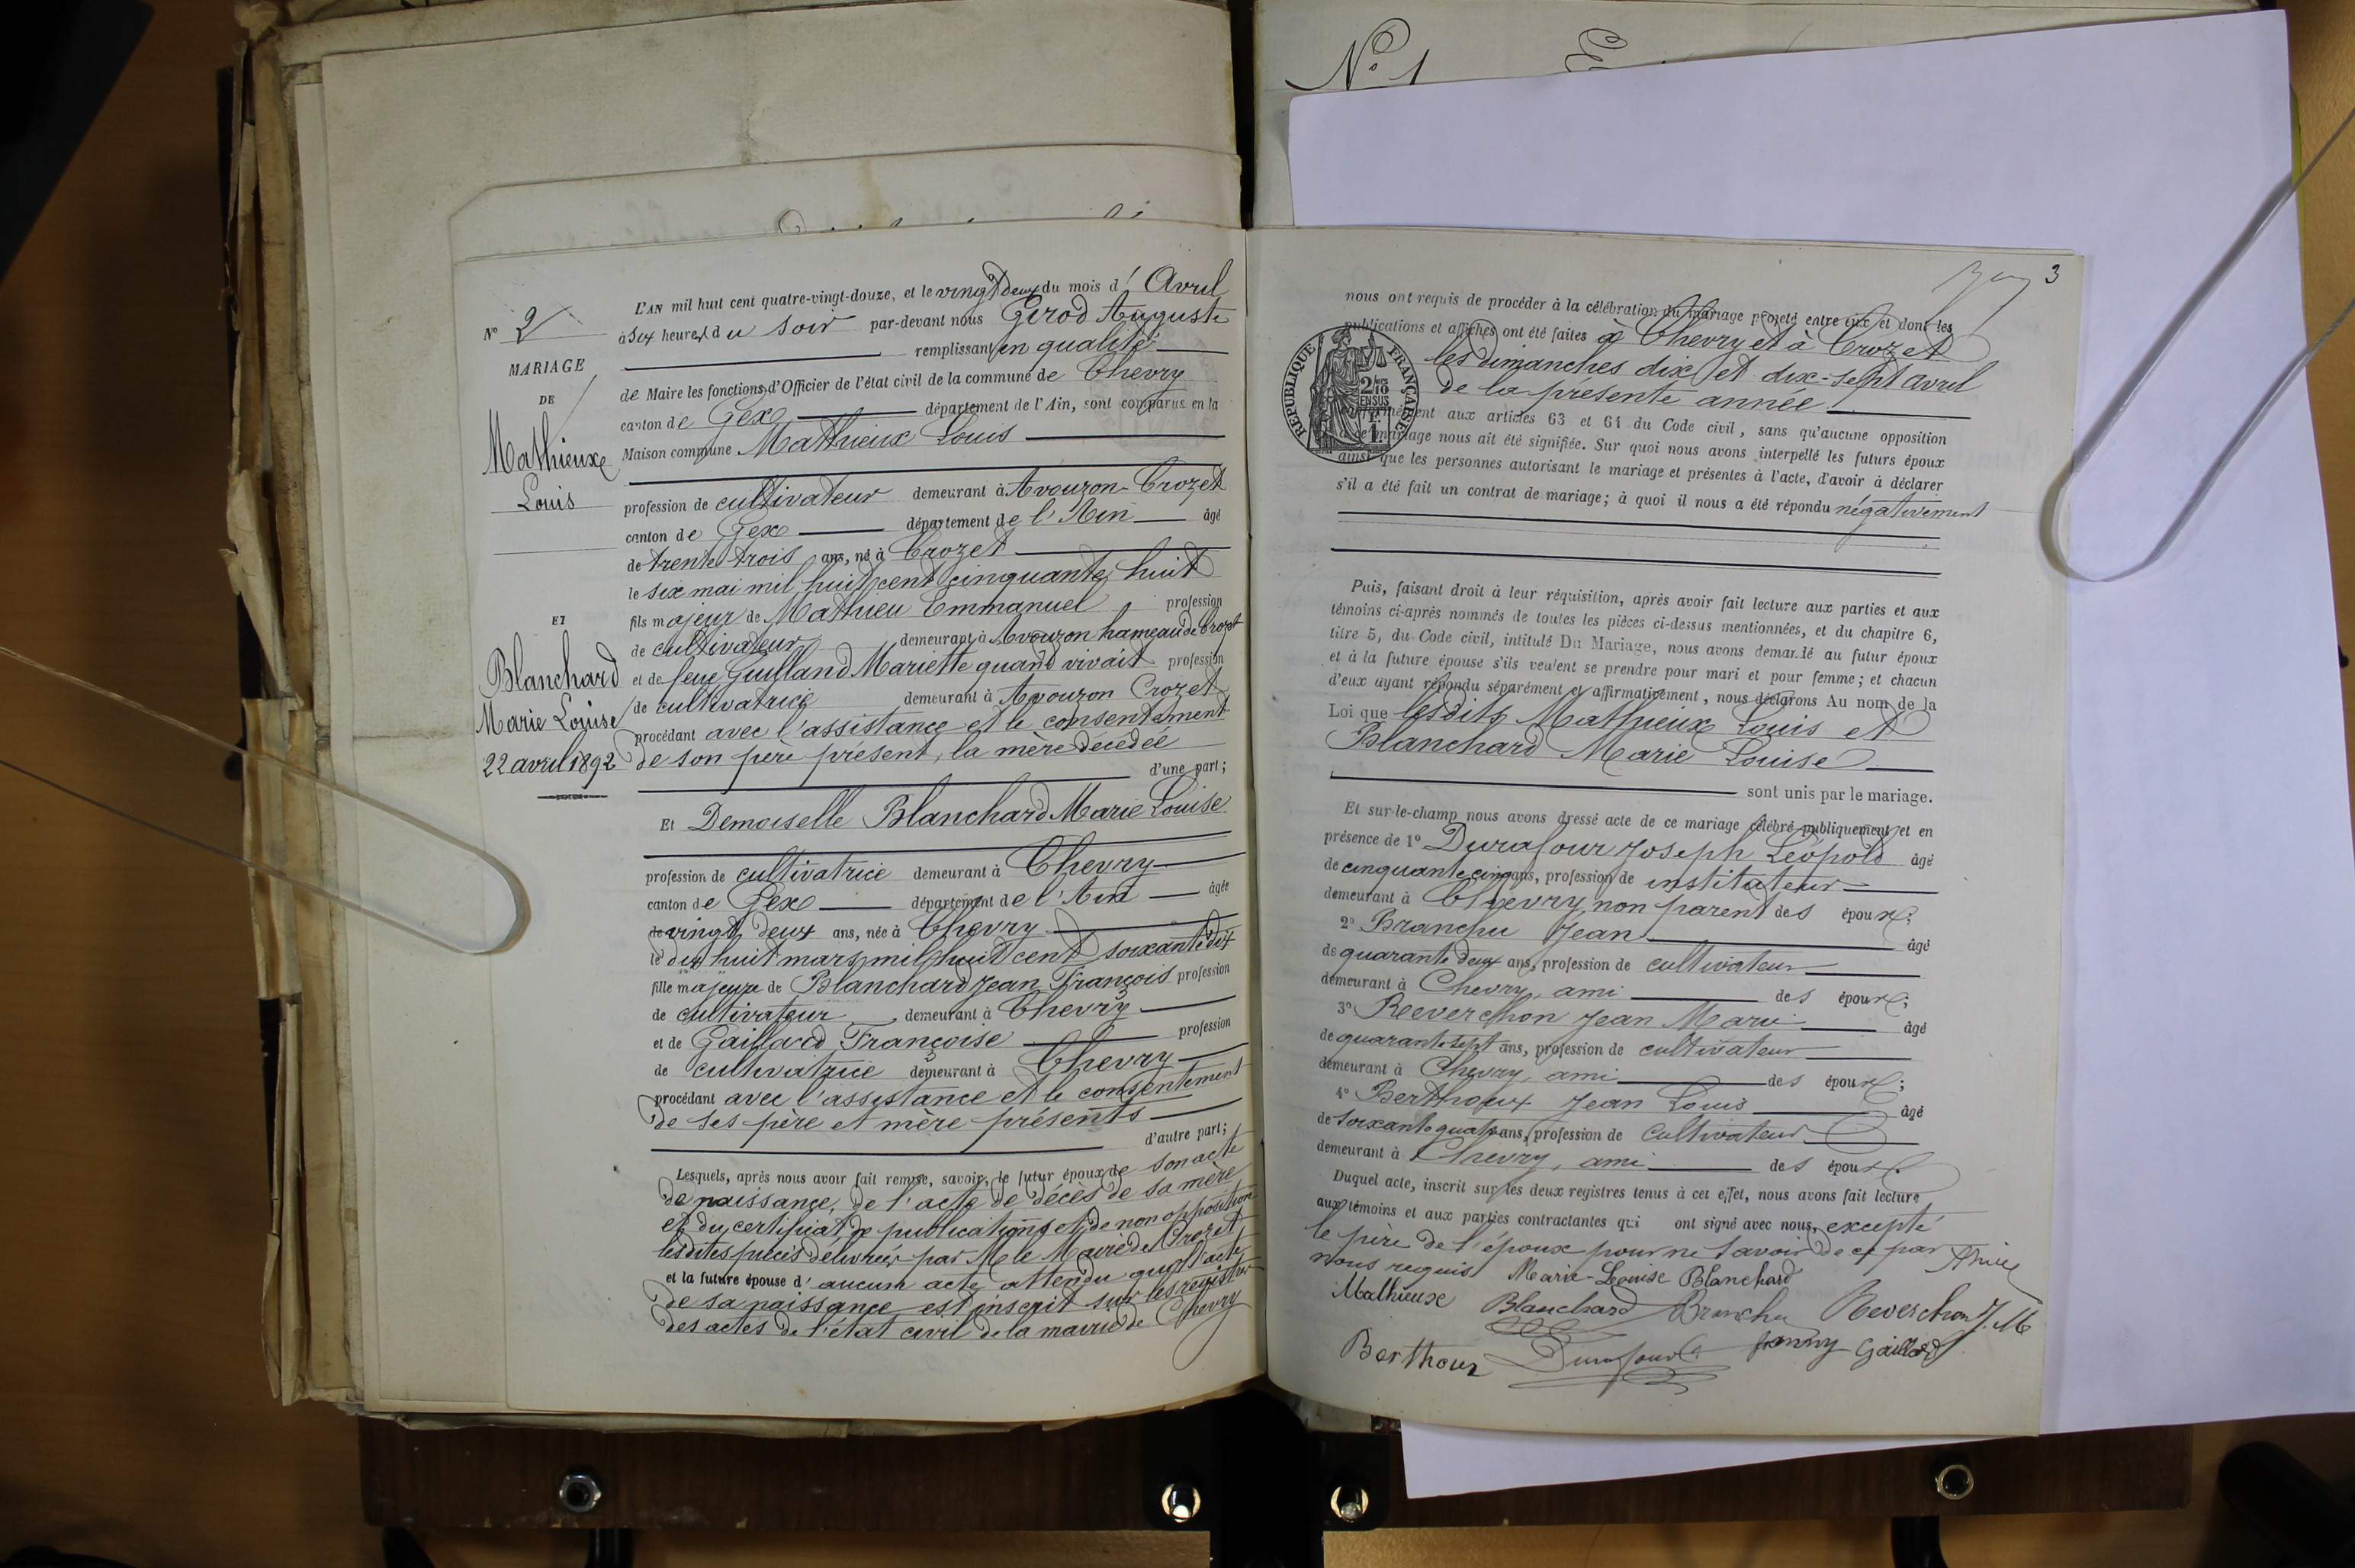 N° 2
MARIAGE
DE
Mathieux
Louis
ET
Blanchard
Marie Louise
22 avril 1892
L'AN mil huit cent quatre-vingt-douze, et le vingt deux du mois d'Avril
à six heures du soir par-devant nous Gerod Auguste
remplissant en qualité
de Maire les fonctions d'Officier de l'état civil de la commune de Chevry
canton de Gex département de l'Ain, sont comparus en la
Maison commune Mathieux Louis
profession de cultivateur demeurant à Avouzon-Crozet
canton de Gex département de l'Ain âgé
de trente trois ans, né à Crozet
le six mai mil huit cent cinquante huit
fils majeur de Mathieu Emmanuel profession
de cultivateur demeurant à Avouzon hameau de Crozet
et de feue Guilland Mariette quand vivait profession
de cultivatrice demeurant à Avouzon Crozet
procédant avec l'assistance et le consentement
de son père présent, la mère décédée
d'une part;
Et Demoiselle Blanchard Marie Louise
profession de cultivatrice demeurant à Chevry
canton de Gex département de l'Ain âgée
de vingt deux ans, née à Chevry
le dix huit mars mil huit cent soixante dix
fille majeure de Blanchard Jean François profession
de cultivateur demeurant à Chevry
et de Gaillard Françoise profession
de cultivatrice demeurant à Chevry
procédant avec l'assistance et le consentement
de ses père et mère présents
d'autre part;
Lesquels, après nous avoir fait remise, savoir, le futur époux de son acte
de naissance, de l'acte de décès de sa mère
et du certificat de publications et de non opposition
lesdites pièces délivrées par M le Maire de Crozet
et la future épouse d'aucun acte attendu que l'acte
de sa naissance est inscrit sur les registres
des actes de l'état civil de la mairie de Chevry
N° 1
3
nous ont requis de procéder à la célébration du mariage projeté entre eux et dont les
publications et affiches ont été faites à Chevry et à Crozet
les dimanches dix et dix-sept avril
de la présente année
RÉPUBLIQUE FRANÇAISE
aux articles 63 et 64 du Code civil, sans qu'aucune opposition
mariage nous ait été signifiée. Sur quoi nous avons interpellé les futurs époux
ainsi que les personnes autorisant le mariage et présentes à l'acte, d'avoir à déclarer
s'il a été fait un contrat de mariage; à quoi il nous a été répondu négativement
Puis, faisant droit à leur réquisition, après avoir fait lecture aux parties et aux
témoins ci-après nommés de toutes les pièces ci-dessus mentionnées, et du chapitre 6,
titre 5, du Code civil, intitulé Du Mariage, nous avons demandé au futur époux
et à la future épouse s'ils veulent se prendre pour mari et pour femme; et chacun
d'eux ayant répondu séparément et affirmativement, nous déclarons Au nom de la
Loi que lesdits Mathieux Louis et
Blanchard Marie Louise
sont unis par le mariage.
Et sur-le-champ nous avons dressé acte de ce mariage célébré publiquement et en
présence de 1° Durafour Joseph Léopold âgé
de cinquante cinq ans, profession de instituteur
demeurant à Chevry, non parent des époux;
2° Branchu Jean âgé
de quarante deux ans, profession de cultivateur
demeurant à Chevry, ami des époux;
3° Reeverchon Jean Marie âgé
de quarante sept ans, profession de cultivateur
demeurant à Chevry, ami des époux;
4° Berthoux Jean Louis âgé
de soixante quatre ans, profession de cultivateur
demeurant à Chevry, ami des époux.
Duquel acte, inscrit sur les deux registres tenus à cet effet, nous avons fait lecture
aux témoins et aux parties contractantes qui ont signé avec nous, excepté
le père de l'époux pour ne savoir de ce par
nous requis Marie-Louise Blanchard
Mathieux Blanchard Branchu Reverchon J. M
Berthoux Durafour Gaillard